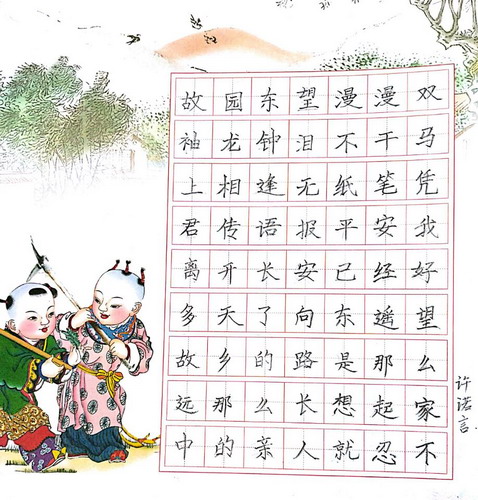 故园东望漫漫双
袖龙钟泪不干马
上相逢无纸笔凭
君传语报平安我
离开长安已经好
多天了向东遥望
故乡的路是那么
远那么长想起家
中的亲人就忍不
许诺言